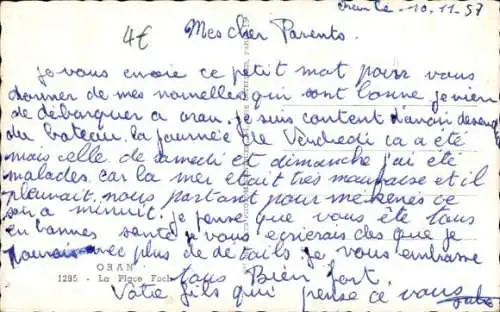 10.11.57
4€
Mes cher Parents.
je vous envoie ce petit mot pour vous
donner de mes nouvelles qui sont bonne je vien
de débarquer a oran. je suis content d'avoir
du bateau. la journeé de Vendredi ca a été
mais celle de samedi et dimanche j'ai été
malades car la mer était très mauvaise et il
pleuvait. nous partont pour ce
soir a minuit. je pense que vous éte tous
en bonnes santé je vous ecrierais des que je
pourais avec plus de details. je vous embrasse
ORAN
1285 - La Place Foch
tous Bien fort.
Votre fils qui pense a vous